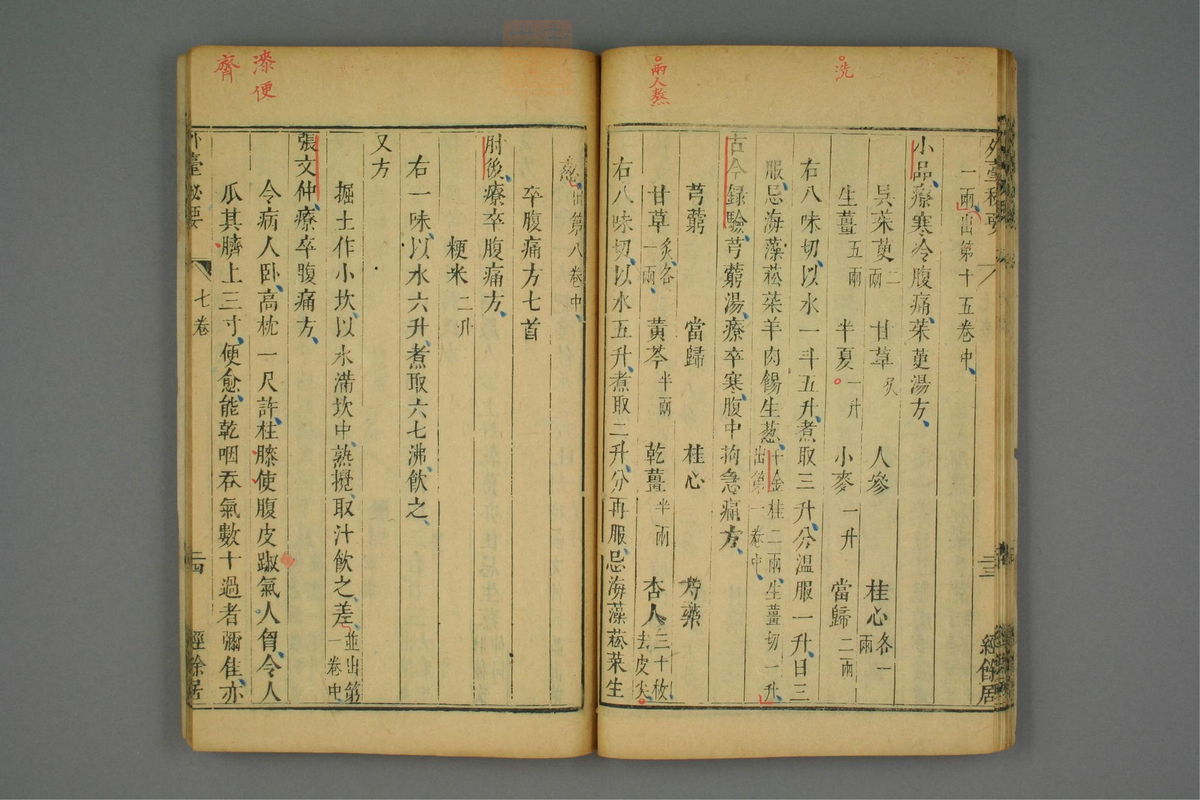 洗
兩人熬
外臺秘要
二三
經餘居
一兩出第十五卷中
小品療寒冷腹痛茱萸湯方
吳茱萸二兩 甘草炙 人參 桂心各一兩
生薑五兩 半夏一升 小麥一升 當歸二兩
右八味切以水一斗五升煮取三升分溫服一升日三
服忌海藻菘菜羊肉餳生葱千金桂二兩生薑切一升出第一卷中
古今錄驗芎藭湯療卒寒腹中拘急痛方
芎藭 當歸 桂心 芍藥
甘草炙各一兩 黃芩半兩 乾薑半兩 杏人三十枚去皮尖
右八味切以水五升煮取二升分再服忌海藻菘菜生
漆便
齊
葱出第八卷中
卒腹痛方七首
肘後療卒腹痛方
粳米二升
右一味以水六升煮取六七沸飲之
又方
掘土作小坎以水滿坎中熟攪取汁飲之差並出第一卷中
張文仲療卒腹痛方
令病人臥高枕一尺許桂膝使腹皮踧氣人胷令人
瓜其臍上三寸便愈能乾咽吞氣數十過者彌佳亦
外臺秘要
七卷
二四
經餘居